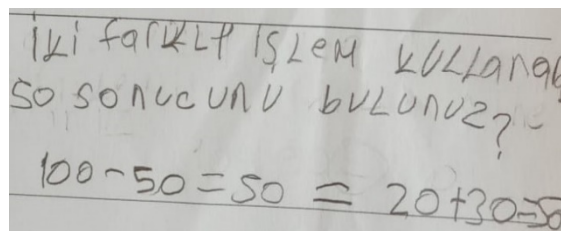 İki farklı işlem kullanar
50 sonucunu bulunuz?
100-50=50 = 20+30=50